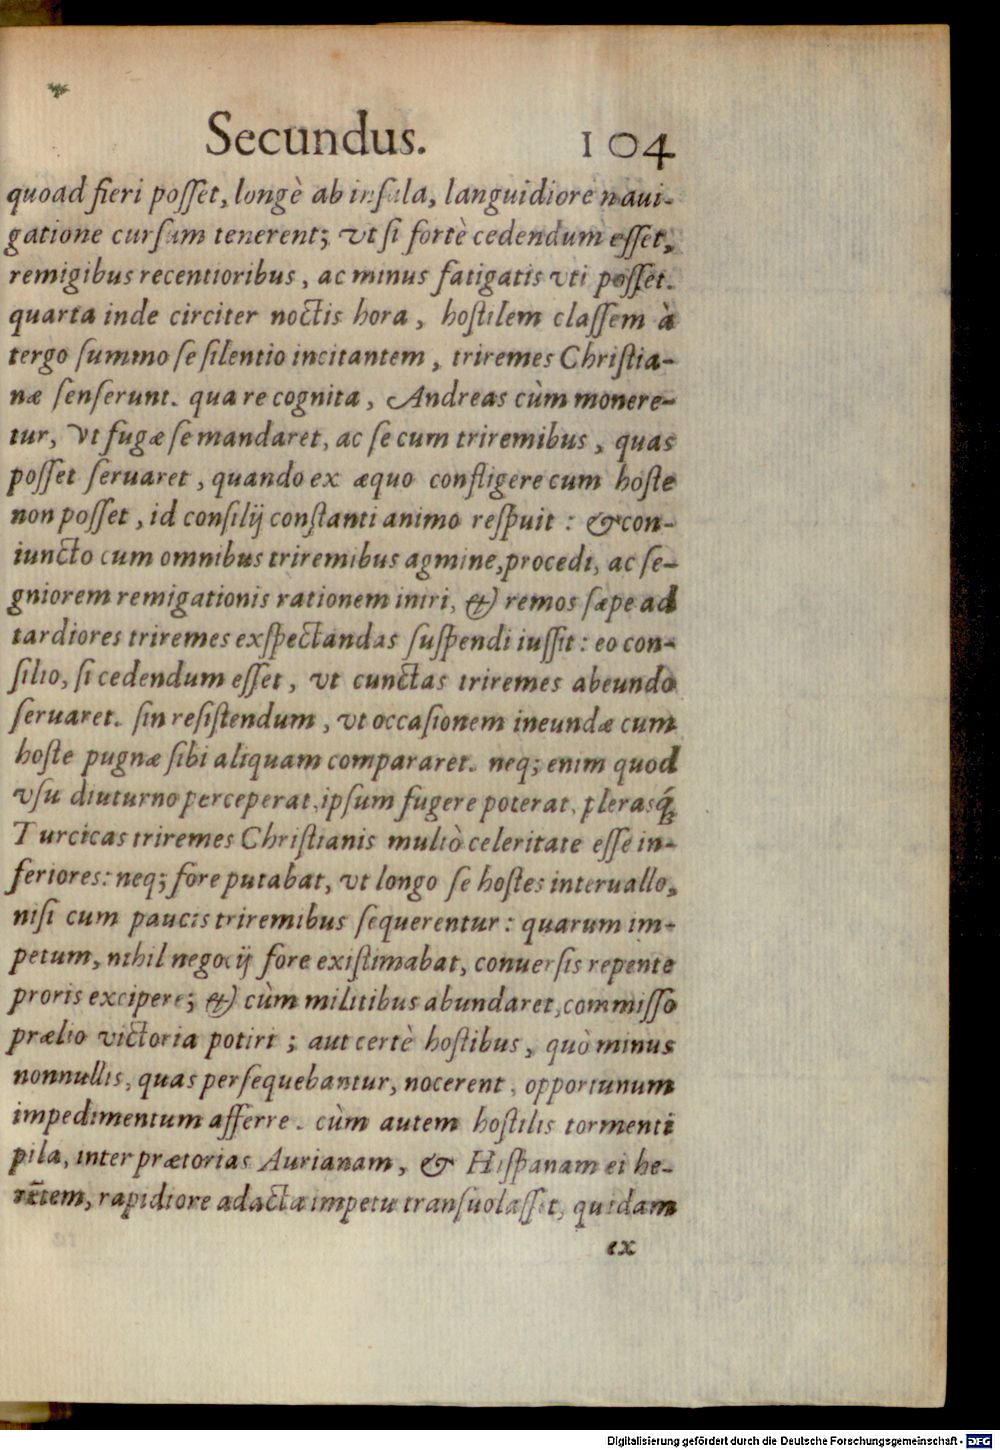 Secundus. 104
quoad fieri posſet, longè ab inſula, languidiore naui-
gatione curſum tenerent; vt ſi fortè cedendum eſſet,
remigibus recentioribus, ac minus fatigatis vti poſſet.
quarta inde circiter noctis hora, hoſtilem claſſem à
tergo ſummo ſe ſilentio incitantem, triremes Chriſtia-
næ ſenſerunt. qua re cognita, Andreas cùm monere-
tur, vt fugæ ſe mandaret, ac ſe cum triremibus, quas
poſſet ſeruaret, quando ex æquo confligere cum hoſte
non poſſet, id conſilij conſtanti animo reſpuit: & con-
iuncto cum omnibus triremibus agmine, procedi, ac ſe-
gniorem remigationis rationem iniri, & remos ſæpe ad
tardiores triremes exſpectandas ſuſpendi iuſſit: eo con-
ſilio, ſi cedendum eſſet, vt cunctas triremes abeundo
ſeruaret. ſin reſiſtendum, vt occaſionem ineundæ cum
hoſte pugnæ ſibi aliquam compararet. neq; enim quod
vſu diuturno perceperat, ipſum fugere poterat, plerasq́;
Turcicas triremes Chriſtianis multò celeritate eſſe in-
feriores: neq; fore putabat, vt longo ſe hoſtes interuallo,
niſi cum paucis triremibus ſequerentur: quarum im-
petum, nihil negocij fore exiſtimabat, conuerſis repente
proris excipere; & cùm militibus abundaret, commiſſo
prælio victoria potiri; aut certè hoſtibus, quò minus
nonnullis, quas perſequebantur, nocerent, opportunum
impedimentum afferre. cùm autem hoſtilis tormenti
pila, inter prætorias Aurianam, & Hiſpanam ei hę-
rētem, rapidiore adacta impetu tranſuolaſſet, quidam
ex
Digitalisierung gefördert durch die Deutsche Forschungsgemeinschaft - DFG